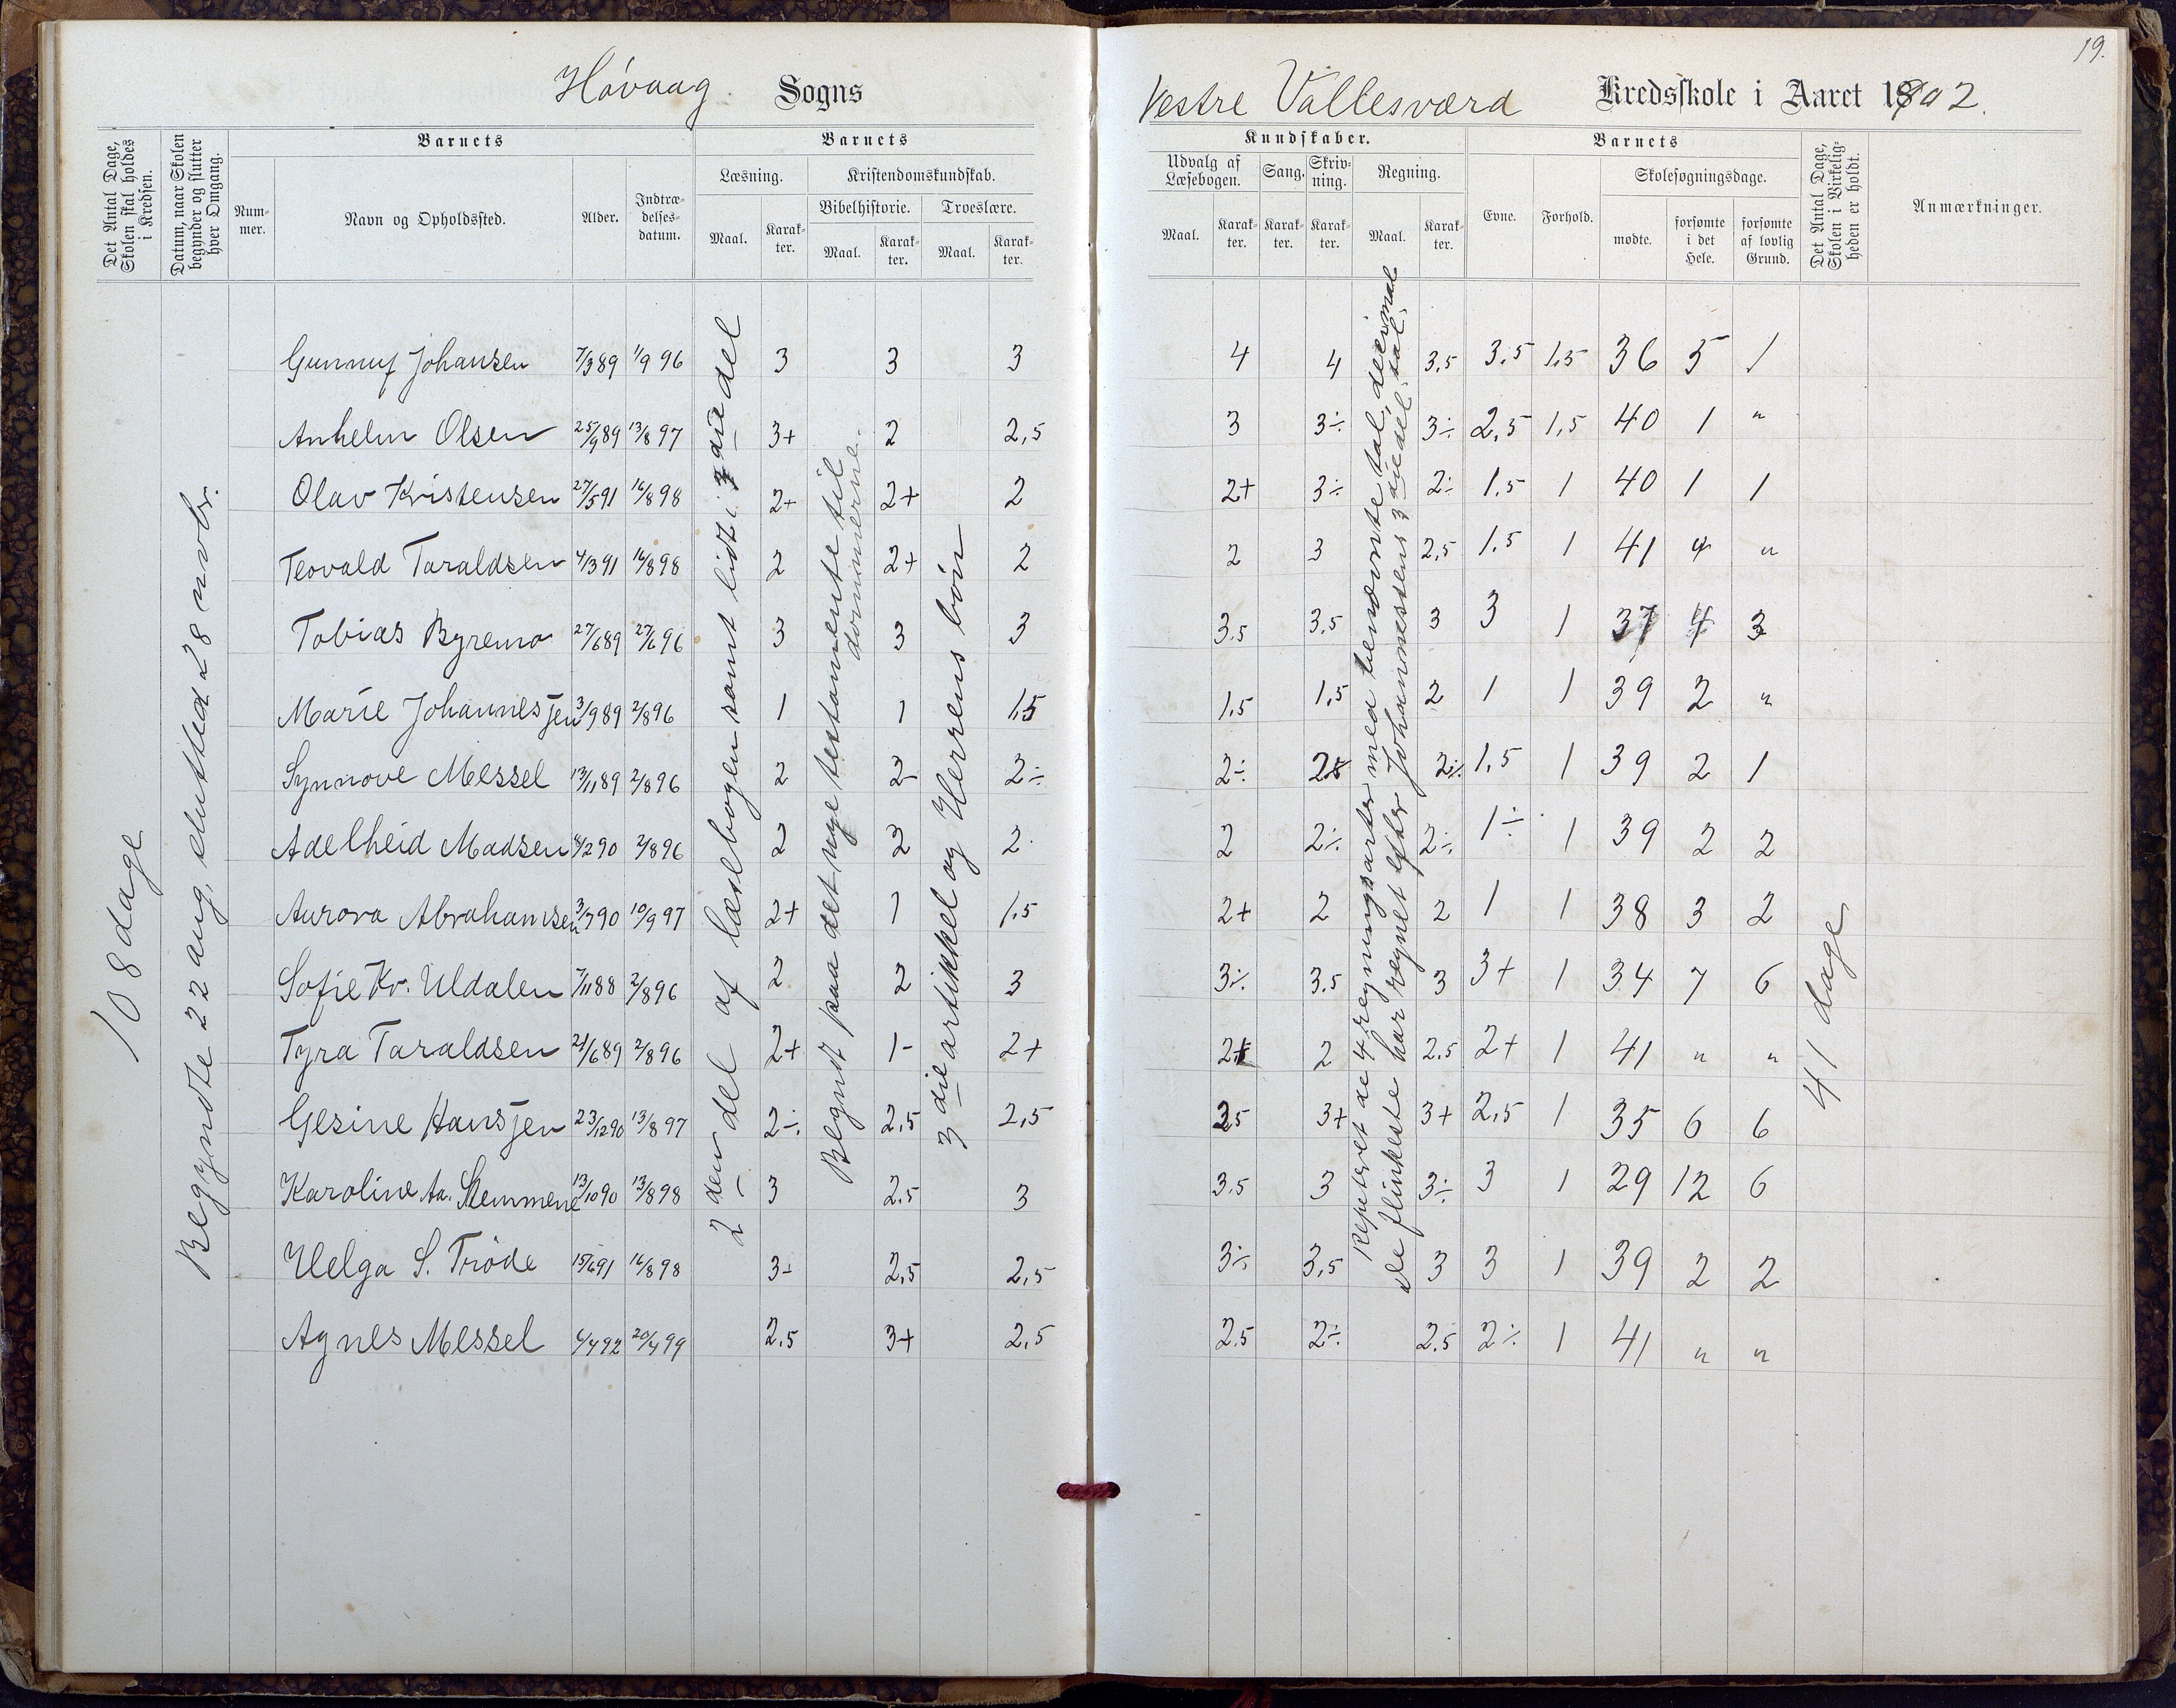 19.
Høvaag Sogns
Vestre Vallesværd Kredsskole i Aaret 1902.
Det Antal Dage, Skolen skal holdes i Kredsen.
Datum, naar Skolen begynder og slutter hver Omgang.
Barnets
Nummer.
Navn og Opholdssted.
Alder.
Indtrædelsesdatum.
Barnets
Læsning.
Maal.
Karakter.
Kristendomskundskab.
Bibelhistorie.
Maal.
Karakter.
Troeslære.
Maal.
Karakter.
Kundskaber.
Udvalg af Læsebogen.
Maal.
Karakter.
Sang.
Karakter.
Skrivning.
Karakter.
Regning.
Maal.
Karakter.
Barnets
Evne.
Forhold.
Skolesøgningsdage.
mødte.
forsømte i det Hele.
forsømte af lovlig Grund.
Det Antal Dage, Skolen i Virkeligheden er holdt.
Anmærkninger.
108 dage
Begyndte 22 aug, slutted 28 novbr.
2den del af læsebogen samt lidt i 3die del
Begynt paa det nye testamente til dommerne.
3die artikkel og Herrens bøn
Repeteret de 4 regningsarter med benævnte tal, decimal tal.
de flinkeste har regnet efter Johannessens 3diedel.
41 dage
Gunnuf Johansen 7/3 89 1/9 96 3 3 3 4 4 3,5 3,5 1,5 36 5 1
Anhelm Olsen 25/9 89 13/8 97 3+ 2 2,5 3 3÷ 3÷ 2,5 1,5 40 1 "
Olav Kristensen 27/5 91 16/8 98 2+ 2+ 2 2+ 3÷ 2÷ 1,5 1 40 1 1
Teovald Taraldsen 4/3 91 16/8 98 2 2+ 2 2 3 2,5 1,5 1 41 " "
Tobias Byremo 27/6 89 27/6 96 3 3 3 3,5 3,5 3 3 1 37 4 3
Marie Johannesjen 3/9 89 2/8 96 1 1 1,5 1,5 1,5 2 1 1 39 2 "
Synnove Messel 13/11 89 2/8 96 2 2- 2÷ 2÷ 2÷ 2÷ 1,5 1 39 2 1
Adelheid Madsen 4/2 90 2/8 96 2 2 2 2 2÷ 2÷ 1÷ 1 39 2 2
Aurora Abrahamsen 3/7 90 10/9 97 2+ 1 1,5 2+ 2 2 1 1 38 3 2
Sofie Kr. Uldalen 7/11 88 2/8 96 2 2 3 3÷ 3,5 3 3+ 1 34 7 6
Tyra Taraldsen 21/6 89 2/8 96 2+ 1- 2+ 2+ 2 2,5 2+ 1 41 " "
Gesine Hansjen 23/12 90 13/8 97 2÷ 2,5 2,5 3,5 3+ 3+ 2,5 1 35 6 6
Karoline Aa. Stemmene 13/10 90 13/8 98 3 2,5 3 3,5 3 3÷ 3 1 29 12 6
Helga S. Trøde 15/6 91 16/8 98 3- 2,5 2,5 3÷ 3,5 3 3 1 39 2 2
Agnes Messel 4/4 92 20/4 99 2,5 3+ 2,5 2,5 2÷ 2,5 2÷ 1 41 " "